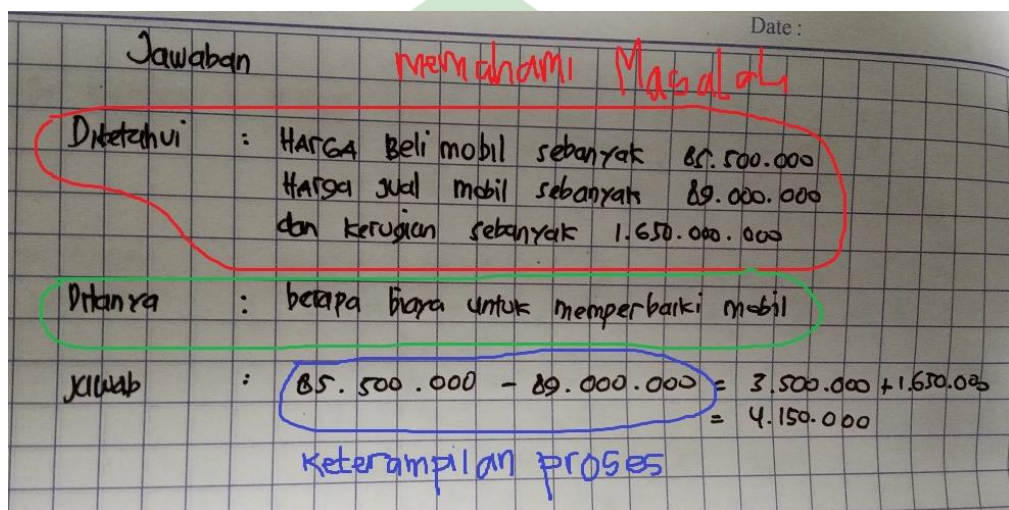 Date :
Jawaban
memahami Masalah
Diketahui : HArGA Beli mobil sebanyak 85.500.000
HArga jual mobil sebanyak 89.000.000
dan kerugian sebanyak 1.650.000.000
Ditanya : berapa biaya untuk memperbaiki mobil
Jawab : 85.500.000 - 89.000.000 = 3.500.000 + 1.650.000
= 4.150.000
Keterampilan proses